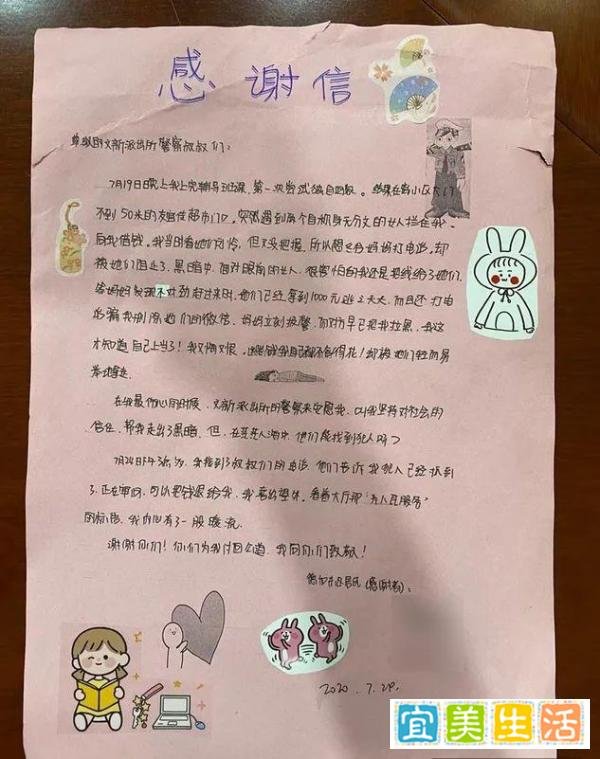 感谢信
尊敬的文新派出所警察叔叔们：
7月19日晚上我上完辅导班课，第一次尝试独自回家。结果在离小区大门
不到50米的友佳超市门口，突然遇到两个自称身无分文的女人拦住我，
向我借钱。我当时看她们可怜，但又没把握，所以想
给妈妈打电话，却
被她们阻止了。黑暗中，面对眼前的女人，很害怕的我还是把钱给了她们。
等妈妈发现不对劲赶过来时，她们已经拿到1000元逃之夭夭，而且还打电
话骗我删除她们的微信。妈妈立刻报警，而对方早已把我拉黑，我这
才知道自己上当了！我又悔又恨，自己都不舍得花！却被她们轻而易
举地骗走。
在我最伤心的时候，文新派出所的警察来安慰我，叫我坚持对社会的
信任，帮我走出了黑暗。但，在茫茫人海中，他们能找到犯人吗？
7月24日下午3点，我接到了叔叔们的电话，他们告诉我犯人已经抓到
了，正在审问，可以把钱还给我，我喜出望外。看着大厅那“为人民服务”
的标语，我内心有了一股暖流。
谢谢你们！你们为我讨回公道，我向你们致敬！
2020.7.29.
宜美生活